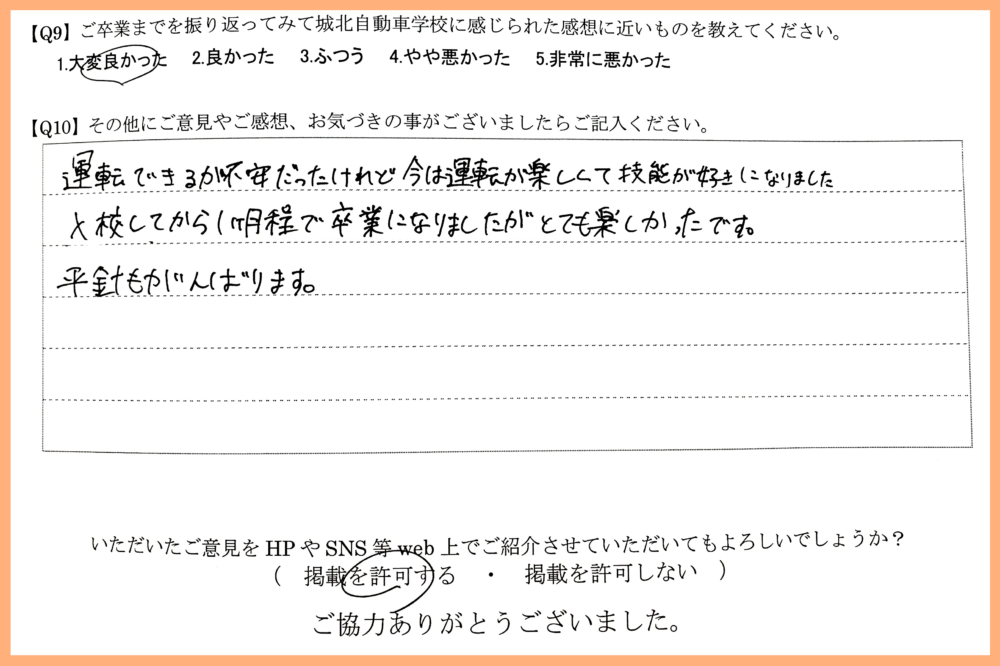 【Q9】ご卒業までを振り返ってみて城北自動車学校に感じられた感想に近いものを教えてください。
1.大変良かった 2.良かった 3.ふつう 4.やや悪かった 5.非常に悪かった
【Q10】その他にご意見やご感想、お気づきの事がございましたらご記入ください。
運転できるが不安だったけれど今は運転が楽しくて技能が好きになりました
入校してから1ヶ月程で卒業になりましたがとても楽しかったです。
平針もがんばります。
いただいたご意見をHPやSNS等web上でご紹介させていただいてもよろしいでしょうか？
（ 掲載を許可する ・ 掲載を許可しない ）
ご協力ありがとうございました。